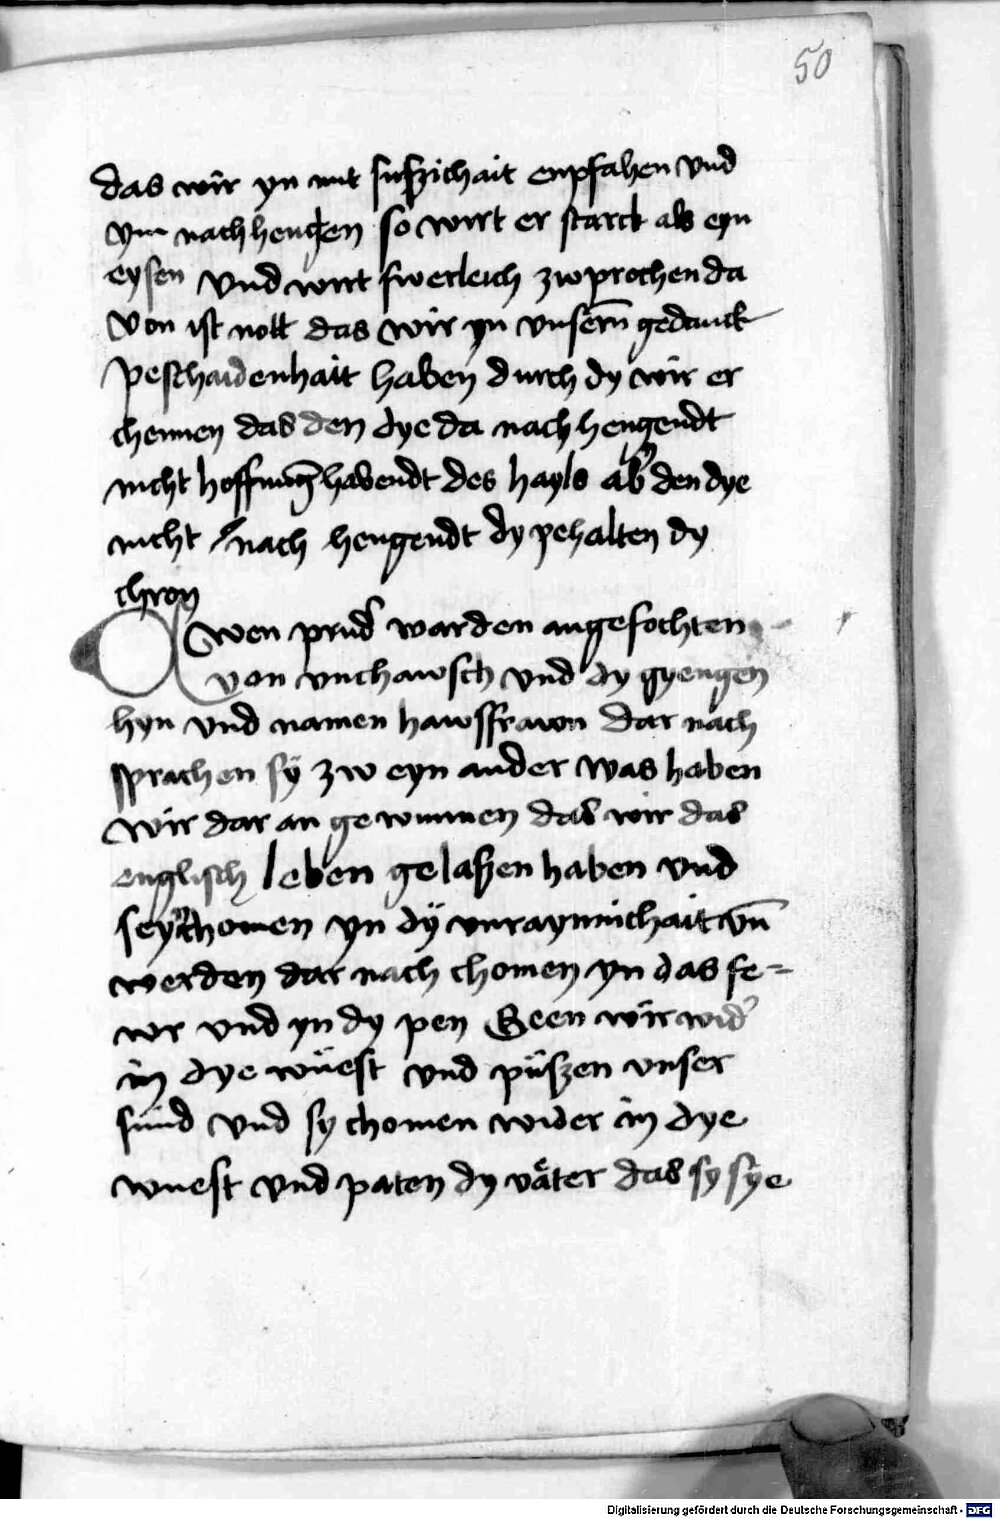 50
das wir yn mit suszichait enpfahen vnd
ym nach hengen so wirt er starck als eyn
eysen vnd wirt swerleich zw prochen da
von ist nott das wir yn vnsern̄ gedanck
peschaidenhait haben durch dy wir er
chennen das den dye da nach hengendt
nicht hoffnūg habendt des hayls ab' den dye
nicht nach hengendt dy pehalten dy
chron
Zwen prud' warden angefochten
von vnchawsch vnd dy gyengen
hyn vnd namen hawsfrawn dar nach
sprachen sÿ zw eyn ander was haben
wir dar an gewunnen das wir das
englisch leben gelaszen haben vnd
seyn chomen yn dÿ vnraynnichait vn̄
werden dar nach chomen yn das fe=
wr vnd yn dy pen Geen wir wid'
in dye wüest vnd püszen vnser
sünd vnd sy chomen wider in dye
wuest vnd paten dy väter das sy sye
Digitalisierung gefördert durch die Deutsche Forschungsgemeinschaft - DFG